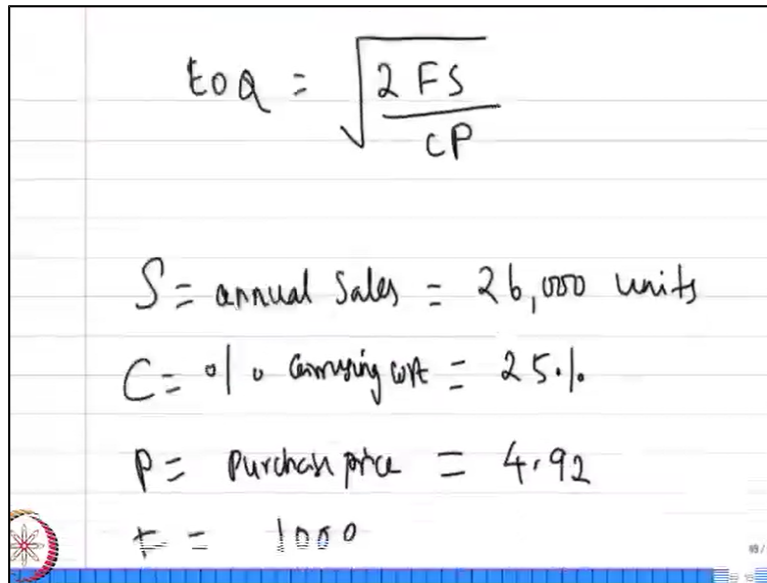 EOQ = √ 2 FS
CP
S = annual Sales = 26,000 units
C = % Carrying cost = 25%
P = Purchase price = 4.92
F = 1000